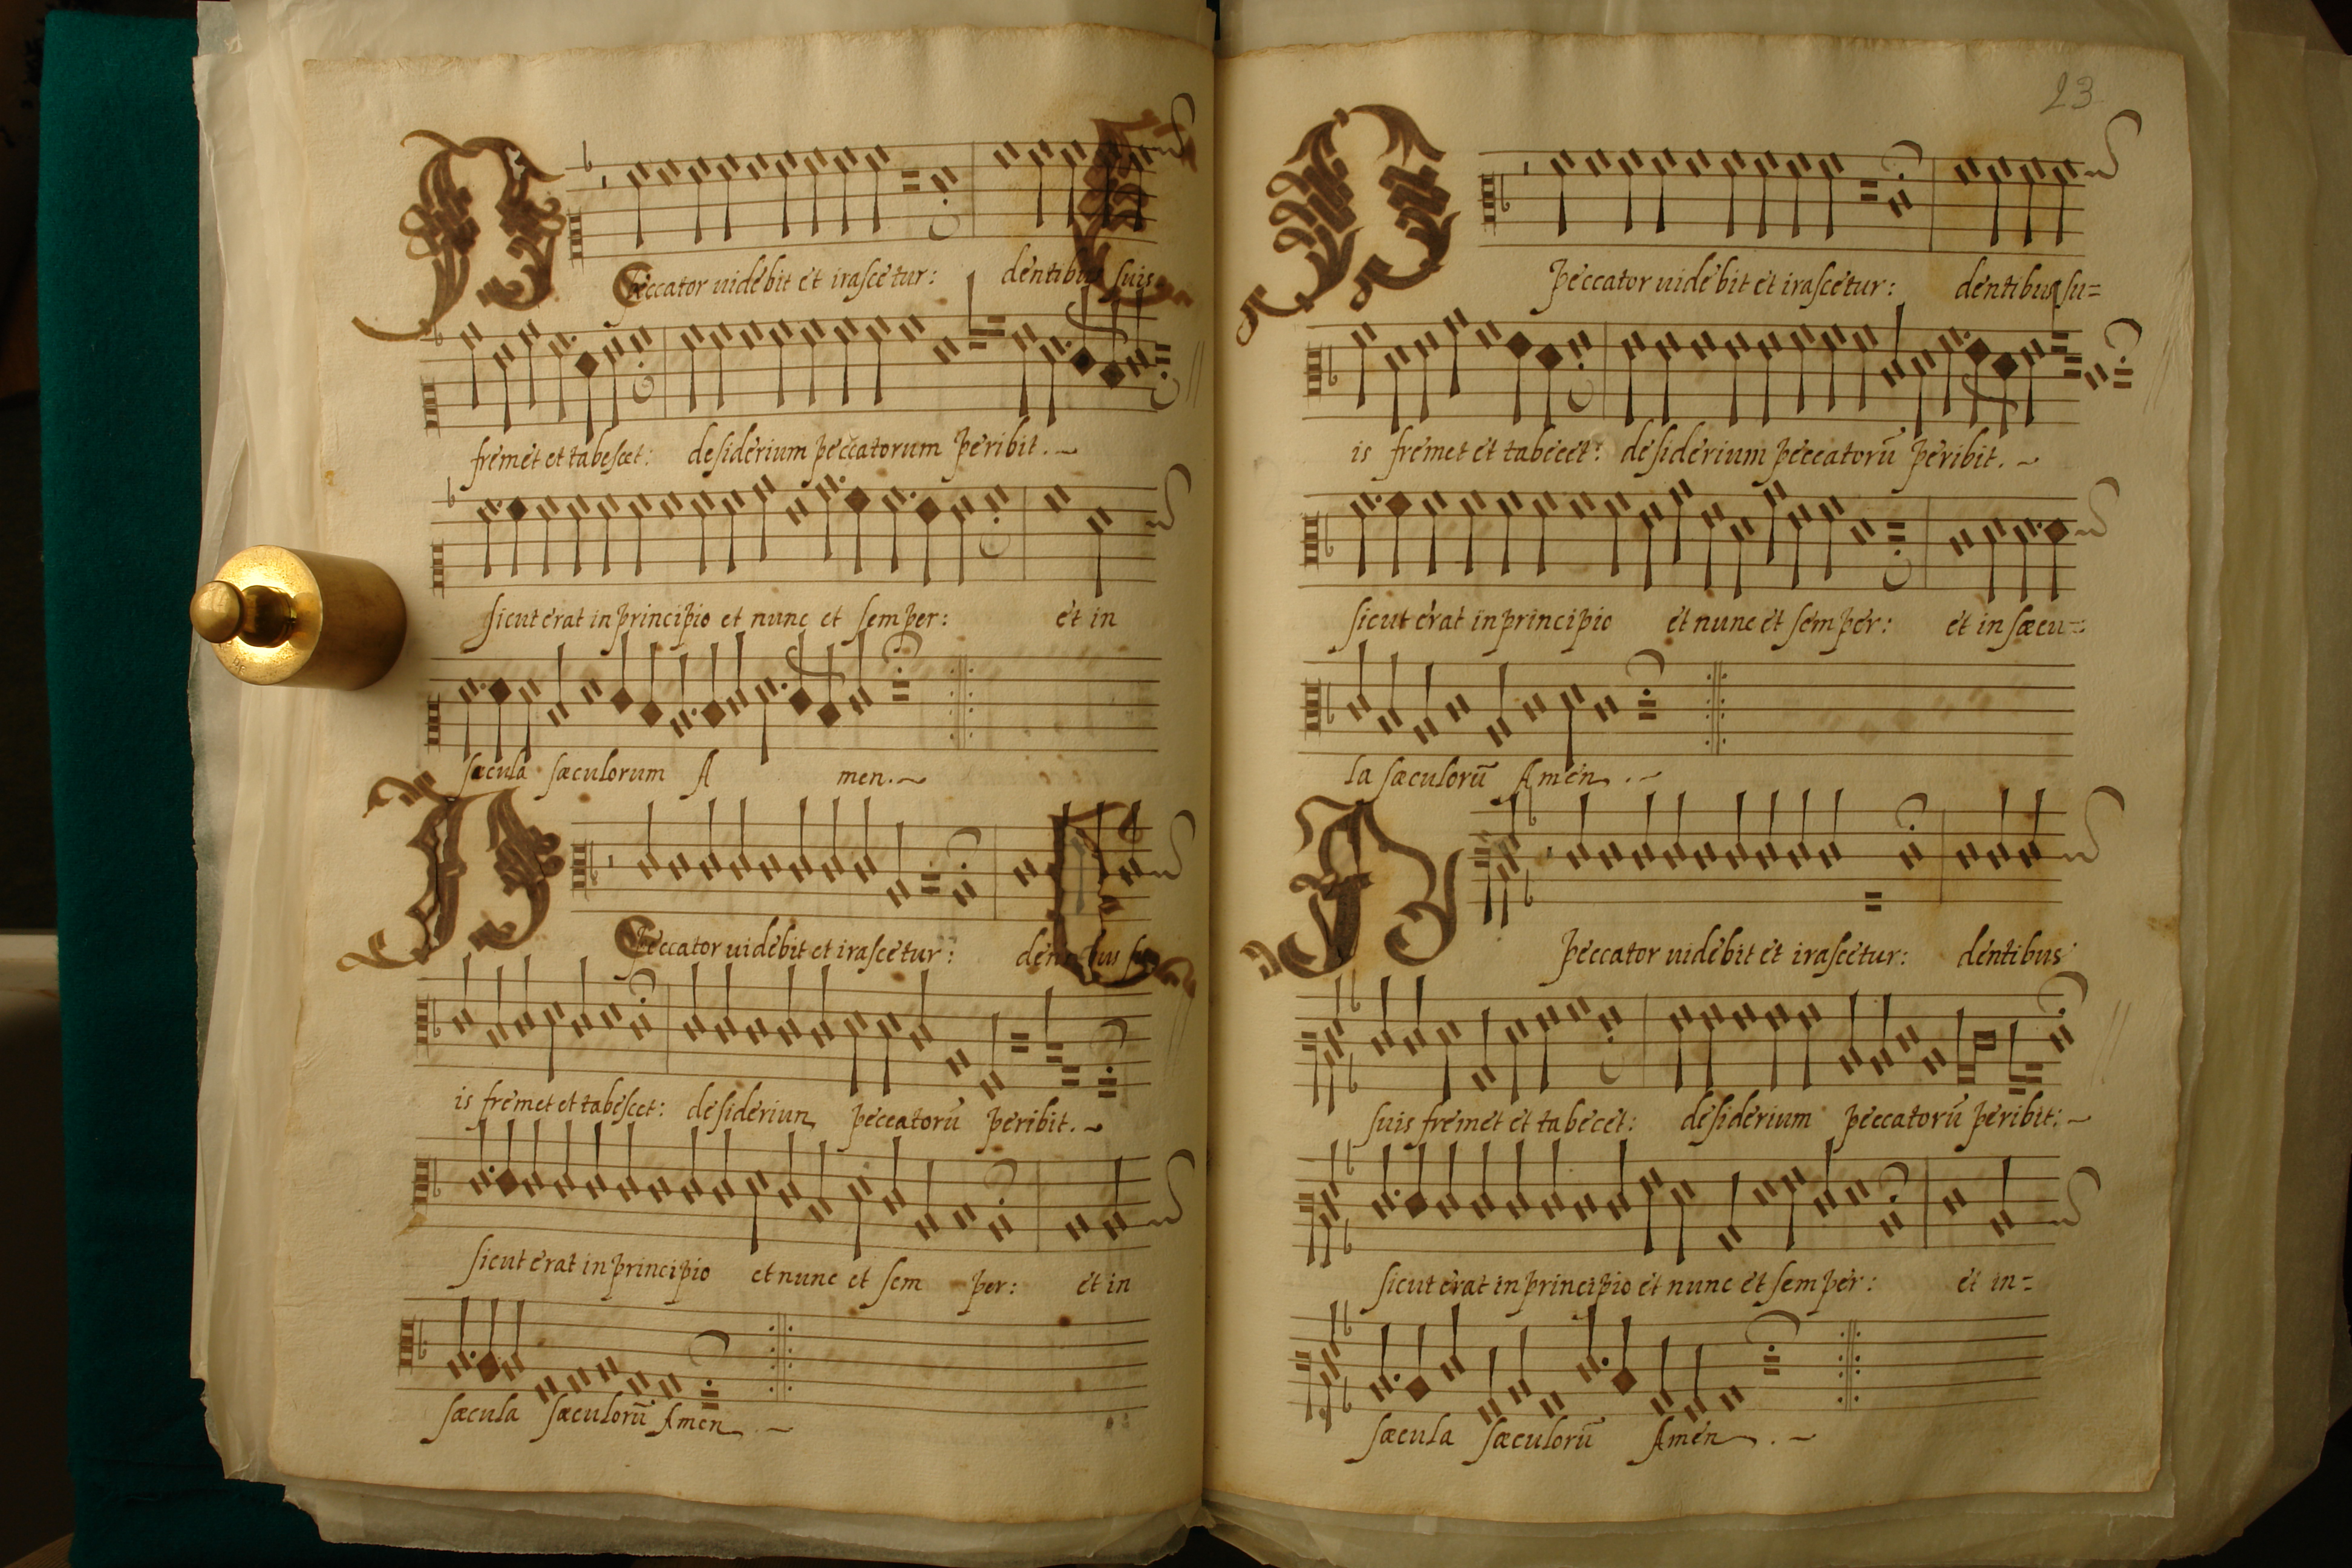 Peccator uidebit et irascetur: dentibus suis
fremet et tabescet: desiderium peccatorum peribit.
sicut erat in principio et nunc et semper: et in
sæcula sæculorum A men.
Peccator uidebit et irascetur: dentibus su
is fremet et tabescet: desiderium peccatorū peribit.
sicut erat in principio et nunc et sem per: et in
sæcula sæculorū Amen.
23
Peccator uidebit et irascetur: dentibus su=
is fremet et tabecet: desiderium peccatorū peribit.
sicut erat in principio et nunc et semper: et in sæcu=
la sæculorū Amen.
Peccator uidebit et irascetur: dentibus
suis fremet et tabecet: desiderium peccatorū peribit:
sicut erat in principio et nunc et semper: et in=
sæcula sæculorū Amen.